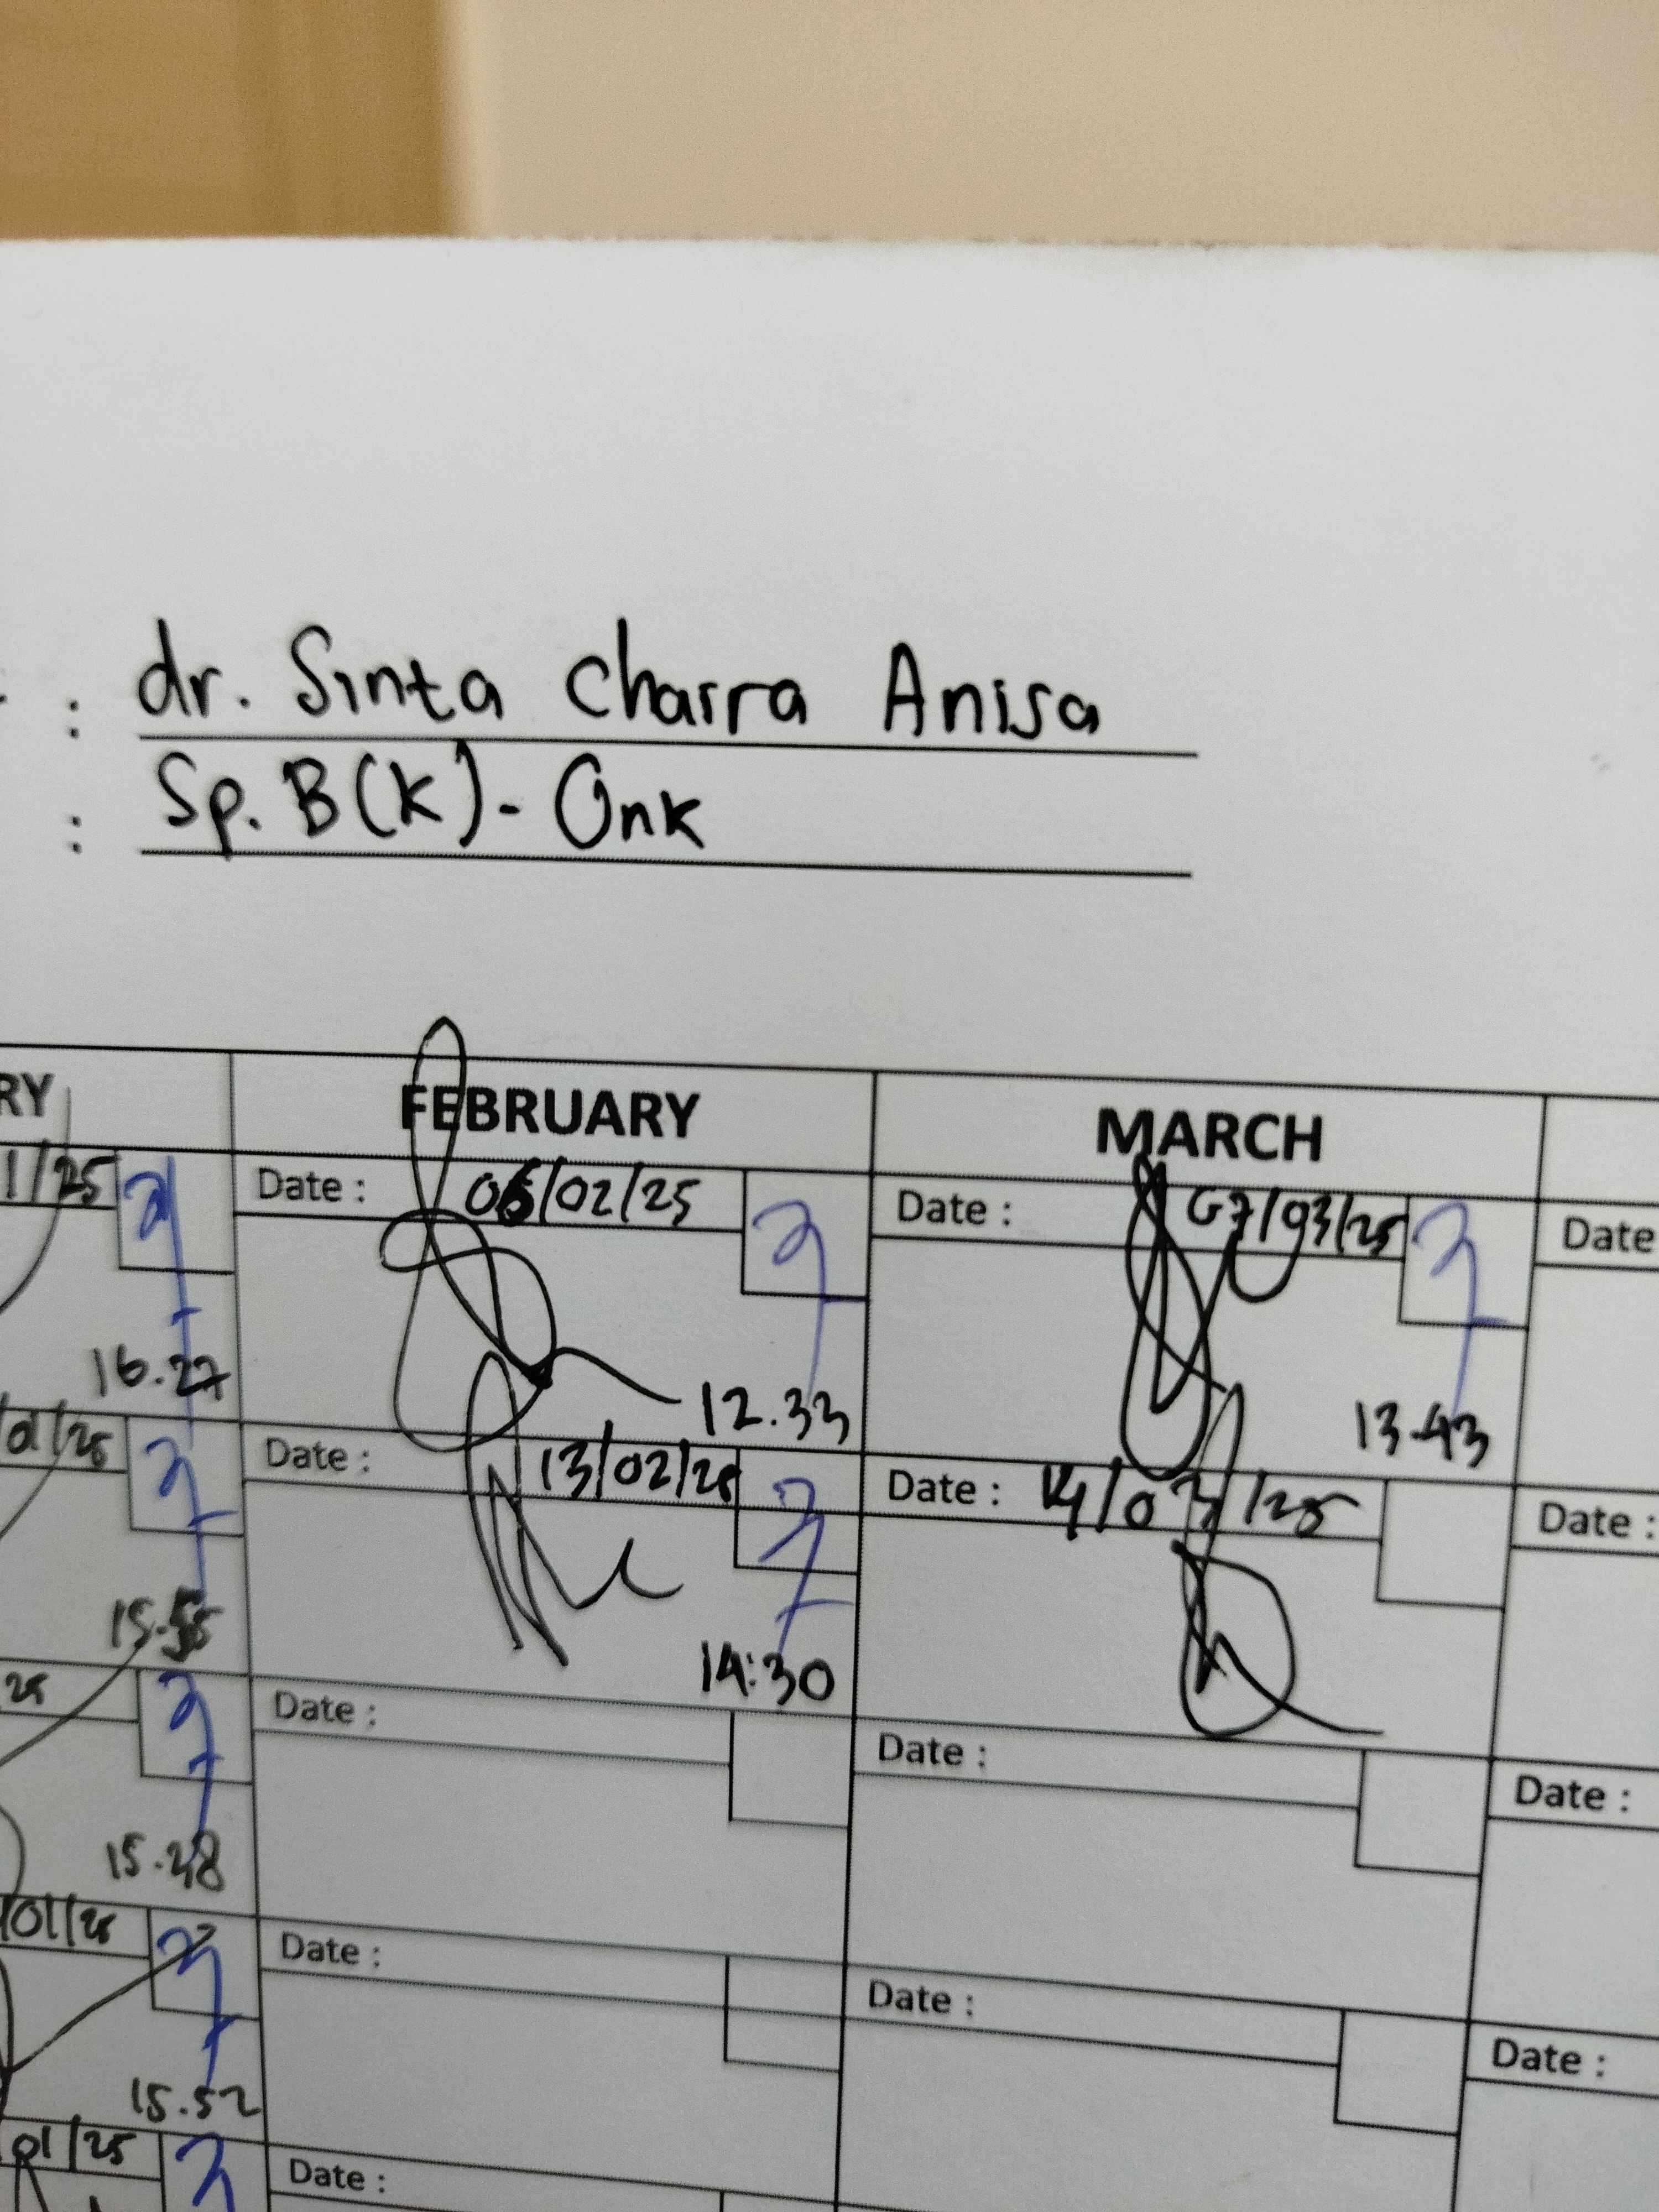 : dr. Sinta Chairra Anisa
: Sp. B(K)- Onk
RY FEBRUARY MARCH
1/25 Date : 06/02/25 Date : 07/03/25 Date
16.27 12.33 13.43
01/25 Date : 13/02/25 Date : 14/03/25 Date :
15.55 14:30
25 Date : Date : Date :
15.48
/01/25 Date : Date : Date :
15.52
01/25 Date :